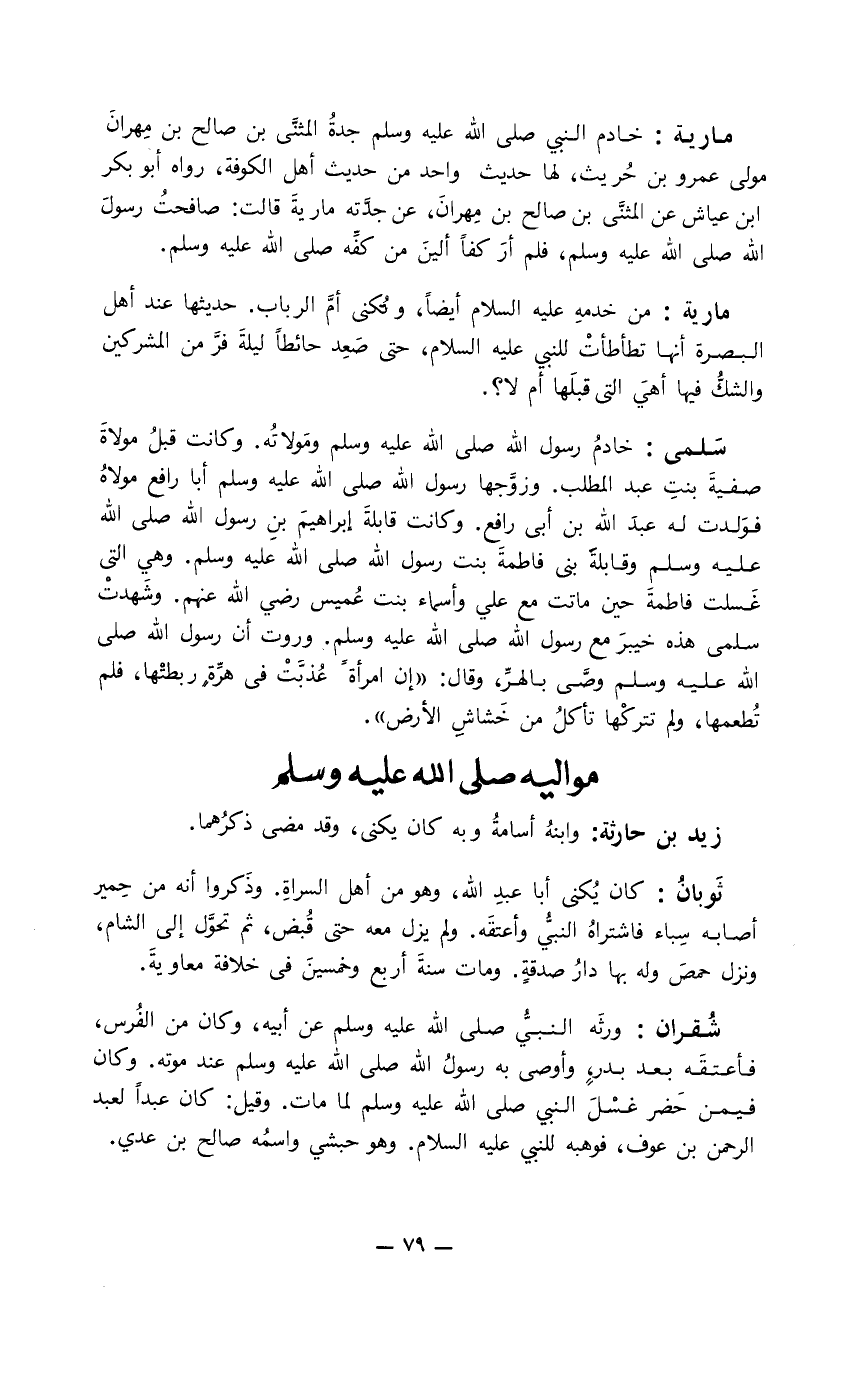 مارية : خادم النبي صلى الله عليه وسلم جدةُ المثنَّى بن صالح بن مِهرانَ
مولى عمرو بن حُريث، لها حديث واحد من حديث أهل الكوفة، رواه أبو بكر
ابن عياش عن المثنَّى بن صالح بن مِهرانَ، عن جدَّته ماريةَ قالت: صافحتُ رسولَ
الله صلى الله عليه وسلم، فلم أرَ كفاً ألينَ من كفِّه صلى الله عليه وسلم.
مارية : من خدمهِ عليه السلام أيضاً، وتُكنى أمَّ الرباب. حديثها عند أهل
البصرة أنها تطأطأتْ للنبي عليه السلام، حتى صَعِد حائطاً ليلةَ فرَّ من المشركين
والشكُّ فيها أهيَ التى قبلَها أم لا؟.
سَلمى : خادمُ رسول الله صلى الله عليه وسلم ومَولاتُه. وكانت قبلُ مولاةَ
صفيةَ بنتِ عبد المطلب. وزوَّجها رسول الله صلى الله عليه وسلم أبا رافع مولاهُ
فوَلدت له عبدَ الله بن أبى رافع. وكانت قابلةَ إبراهيمَ بنِ رسول الله صلى الله
عليه وسلم وقابلةً بنى فاطمةَ بنت رسول الله صلى الله عليه وسلم. وهي التى
غَسلت فاطمةَ حين ماتت مع علي وأسماء بنت عُميس رضي الله عنهم. وشَهدتْ
سلمى هذه خيبرَ مع رسول الله صلى الله عليه وسلم. وروت أن رسول الله صلى
الله عليه وسلم وصَّى بالهرِّ، وقال: «إن امرأةً عُذبَّتْ فى هرَّةٍ ربطتْها، فلم
تُطعمها، ولم تتركْها تأكلُ من خَشاشِ الأرض».
مواليه صلى الله عليه وسلم
زيد بن حارثة: وابنهُ أسامةُ وبه كان يكنى، وقد مضى ذكرُهما.
ثَوبانُ : كان يُكنى أبا عبدِ الله، وهو من أهل السراةِ. وذَكروا أنه من حِمير
أصابه سِباء فاشتراهُ النبيُّ وأعتقَه. ولم يزل معه حتى قُبض، ثم تحوَّل إلى الشام،
ونزل حمصَ وله بها دارُ صدقةٍ. ومات سنةَ أربع وخمسينَ فى خلافة معاويةَ.
شُقران : ورثَه النبيُّ صلى الله عليه وسلم عن أبيه، وكان من الفُرس،
فأعتقَه بعد بدرٍ، وأوصى به رسولُ الله صلى الله عليه وسلم عند موته. وكان
فيمن حَضر غسْلَ النبي صلى الله عليه وسلم لما مات. وقيل: كان عبداً لعبد
الرحمن بن عوف، فوهبه للنبي عليه السلام. وهو حبشي واسمُه صالح بن عدي.
— ٧٩ —